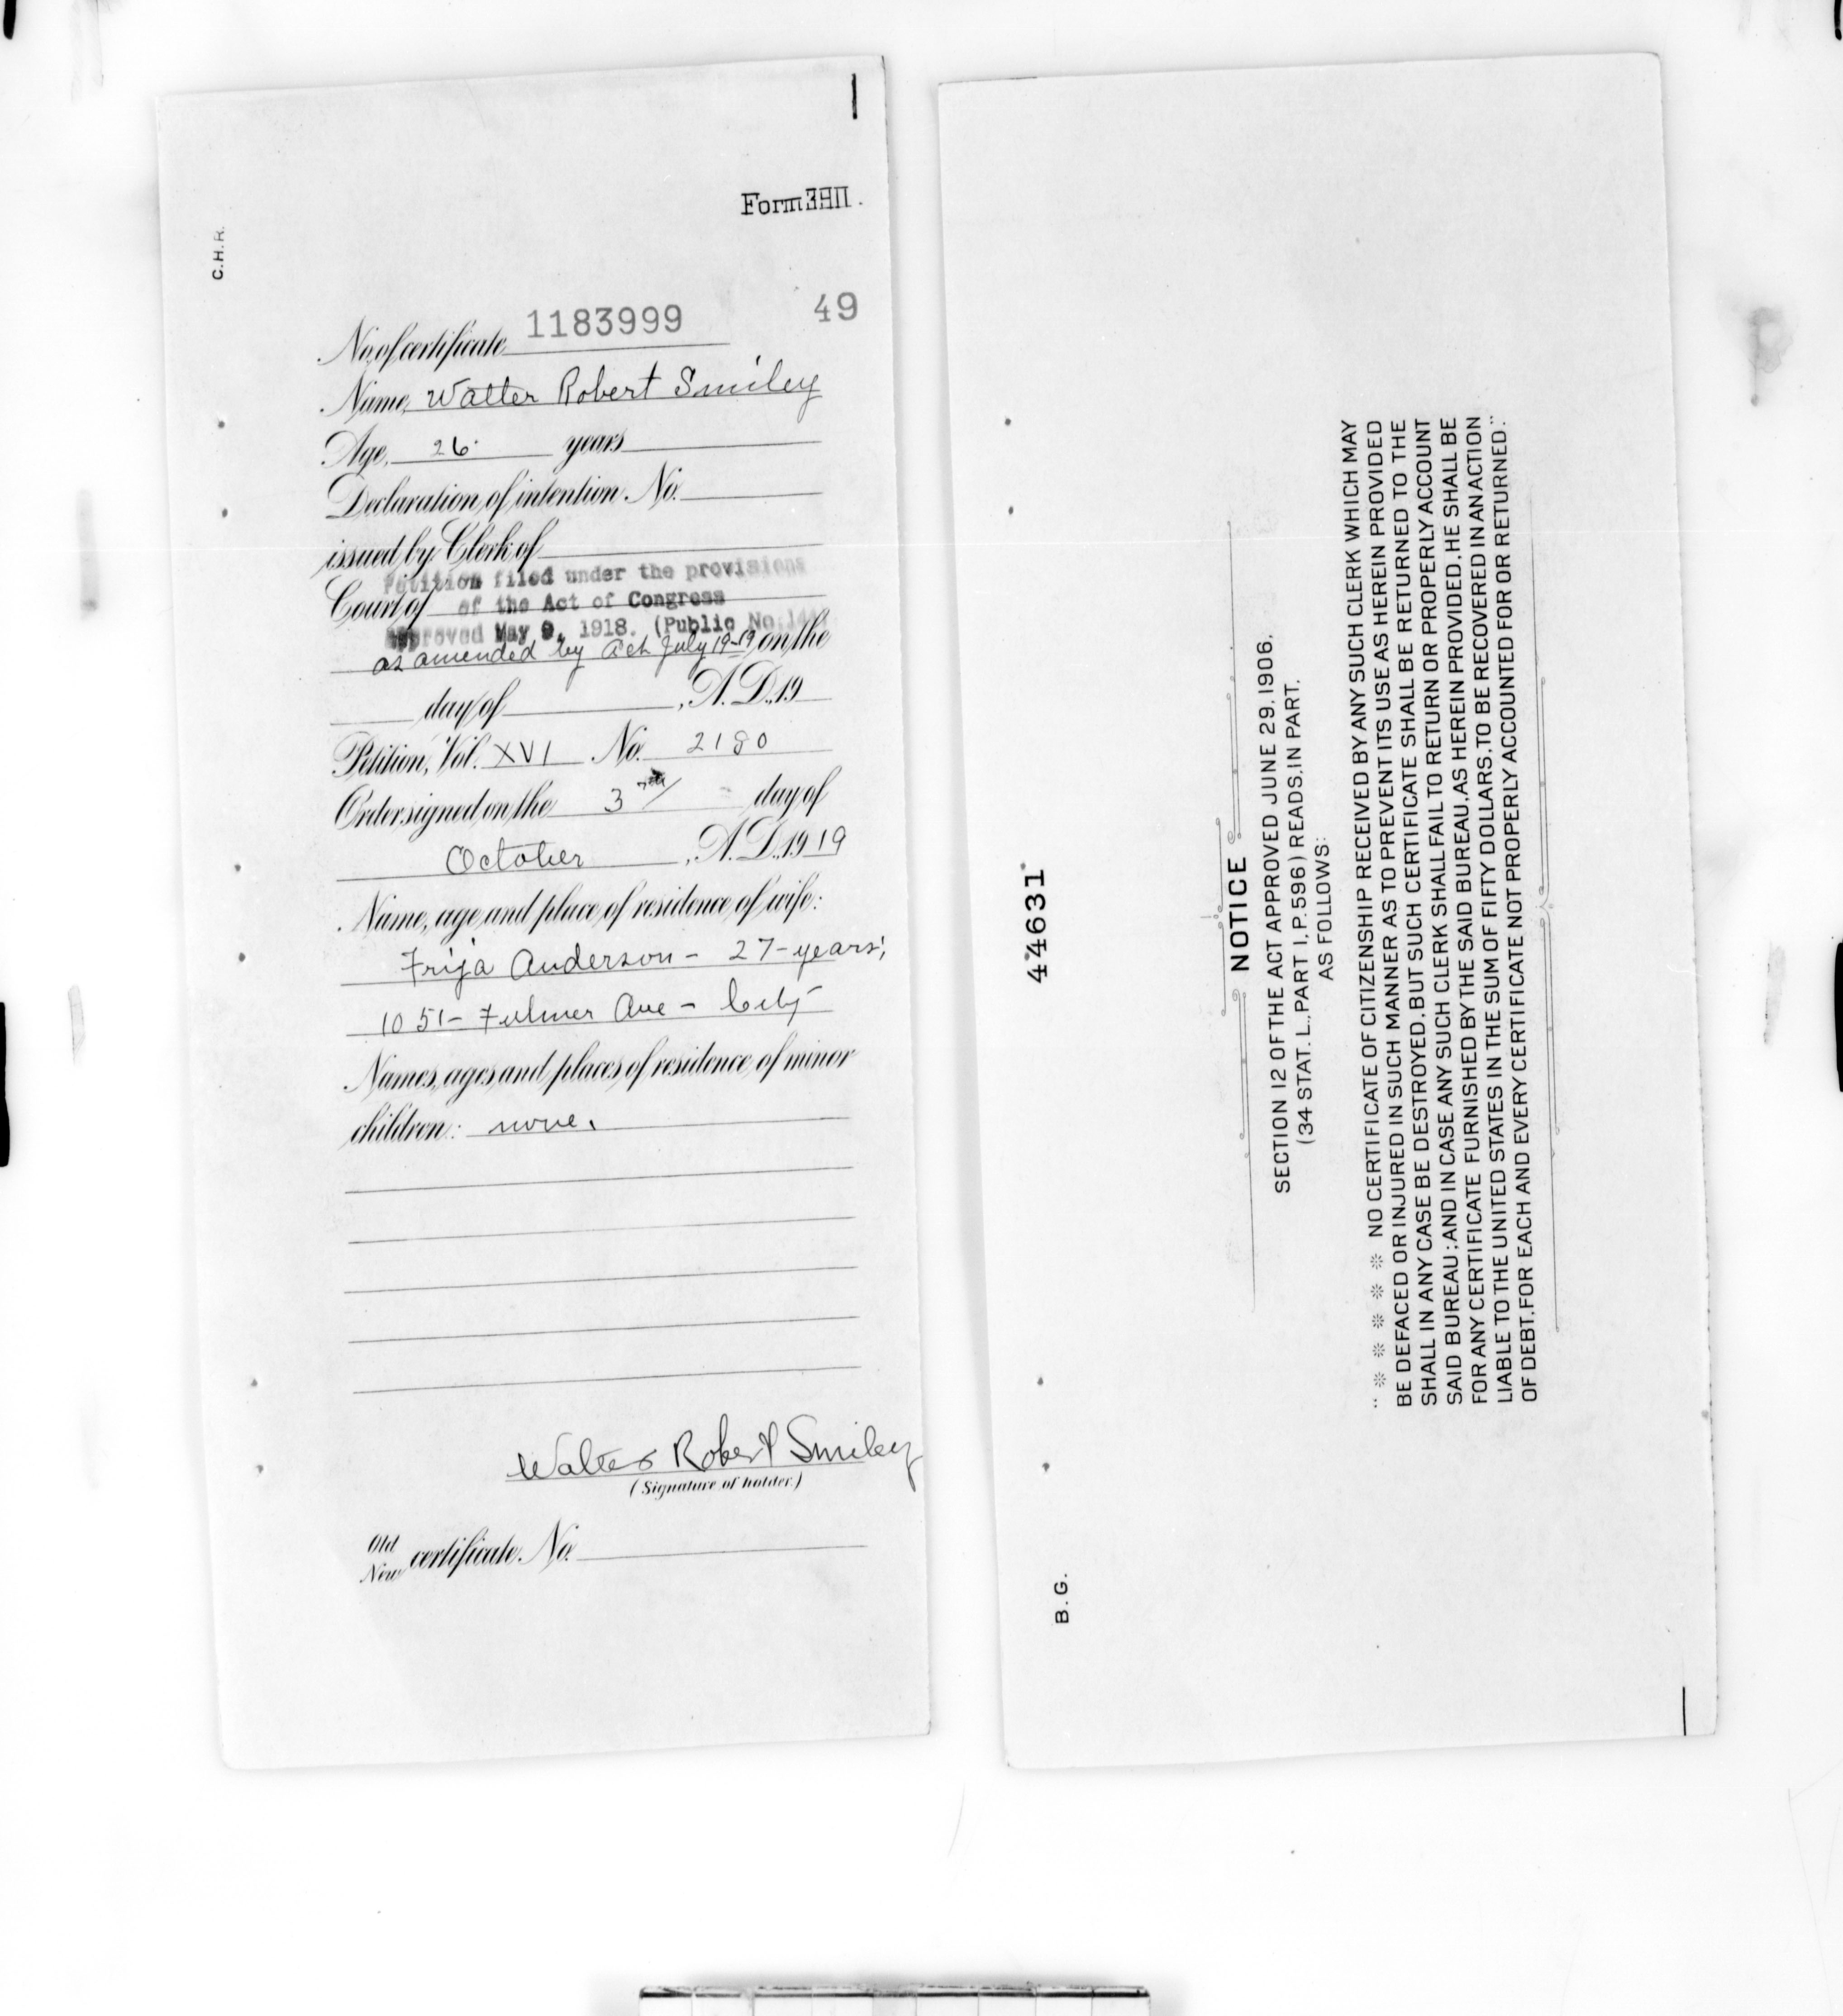 C.H.R.
Form
No. of certificate 1183999 49
Name, Walter Robert Smiley
Age, 26 years
Declaration of intention No.
issued by Clerk of
Petition filed under the provisions
Court of of the Act of Congress
approved May 9, 1918. (Public No.
as amended by Act July 19-19 on the
day of , A.D. 19
Petition, Vol. XVI No. 2180
Order signed on the 3 day of
October , A.D. 19 19
Name, age and place of residence of wife:
Frija Anderson - 27-years;
1051- Fulmer Ave - City
Names, ages and places of residence of minor
children: none.
Walter Robert Smiley
(Signature of holder.)
Old
New certificate No.
44631
B.G.
NOTICE
SECTION 12 OF THE ACT APPROVED JUNE 29, 1906.
(34 STAT. L., PART 1, P. 596) READS, IN PART,
AS FOLLOWS:
"* * * * * * NO CERTIFICATE OF CITIZENSHIP RECEIVED BY ANY SUCH CLERK WHICH MAY
BE DEFACED OR INJURED IN SUCH MANNER AS TO PREVENT ITS USE AS HEREIN PROVIDED
SHALL IN ANY CASE BE DESTROYED, BUT SUCH CERTIFICATE SHALL BE RETURNED TO THE
SAID BUREAU; AND IN CASE ANY SUCH CLERK SHALL FAIL TO RETURN OR PROPERLY ACCOUNT
FOR ANY CERTIFICATE FURNISHED BY THE SAID BUREAU, AS HEREIN PROVIDED, HE SHALL BE
LIABLE TO THE UNITED STATES IN THE SUM OF FIFTY DOLLARS, TO BE RECOVERED IN AN ACTION
OF DEBT, FOR EACH AND EVERY CERTIFICATE NOT PROPERLY ACCOUNTED FOR OR RETURNED."